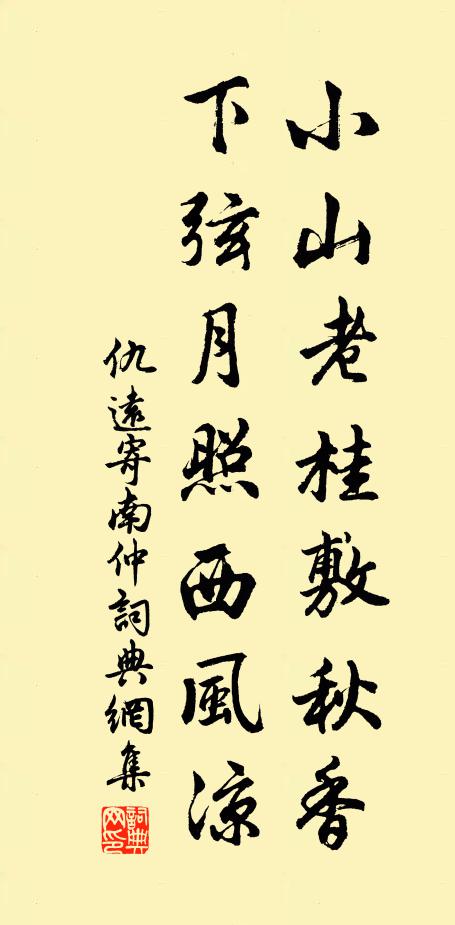 小山老桂敷秋香
下弦月照西風涼
仇遠寄南仲詞典網集
詞典网印